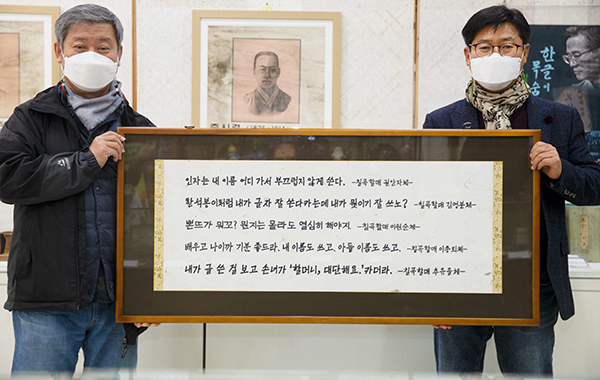 인자는 내 이름 어디 가서 부끄럽지 않게 쓴다. -칠곡할매 권안자체-
한석봉이처럼 내가 글자 잘 쓴다카는데 내가 뭣이가 잘 쓰노? -칠곡할매 김영분체-
뽄뜨가 뭐꼬? 뭔지는 몰라도 열심히 해야지. -칠곡할매 이원순체-
배우고 나이까 기분 좋드라. 내 이름도 쓰고, 아들 이름도 쓰고. -칠곡할매 이종희체-
내가 글 쓴 걸 보고 손녀가 '할머니, 대단해요.'카더라. -칠곡할매 추유을체-
한글이
목숨